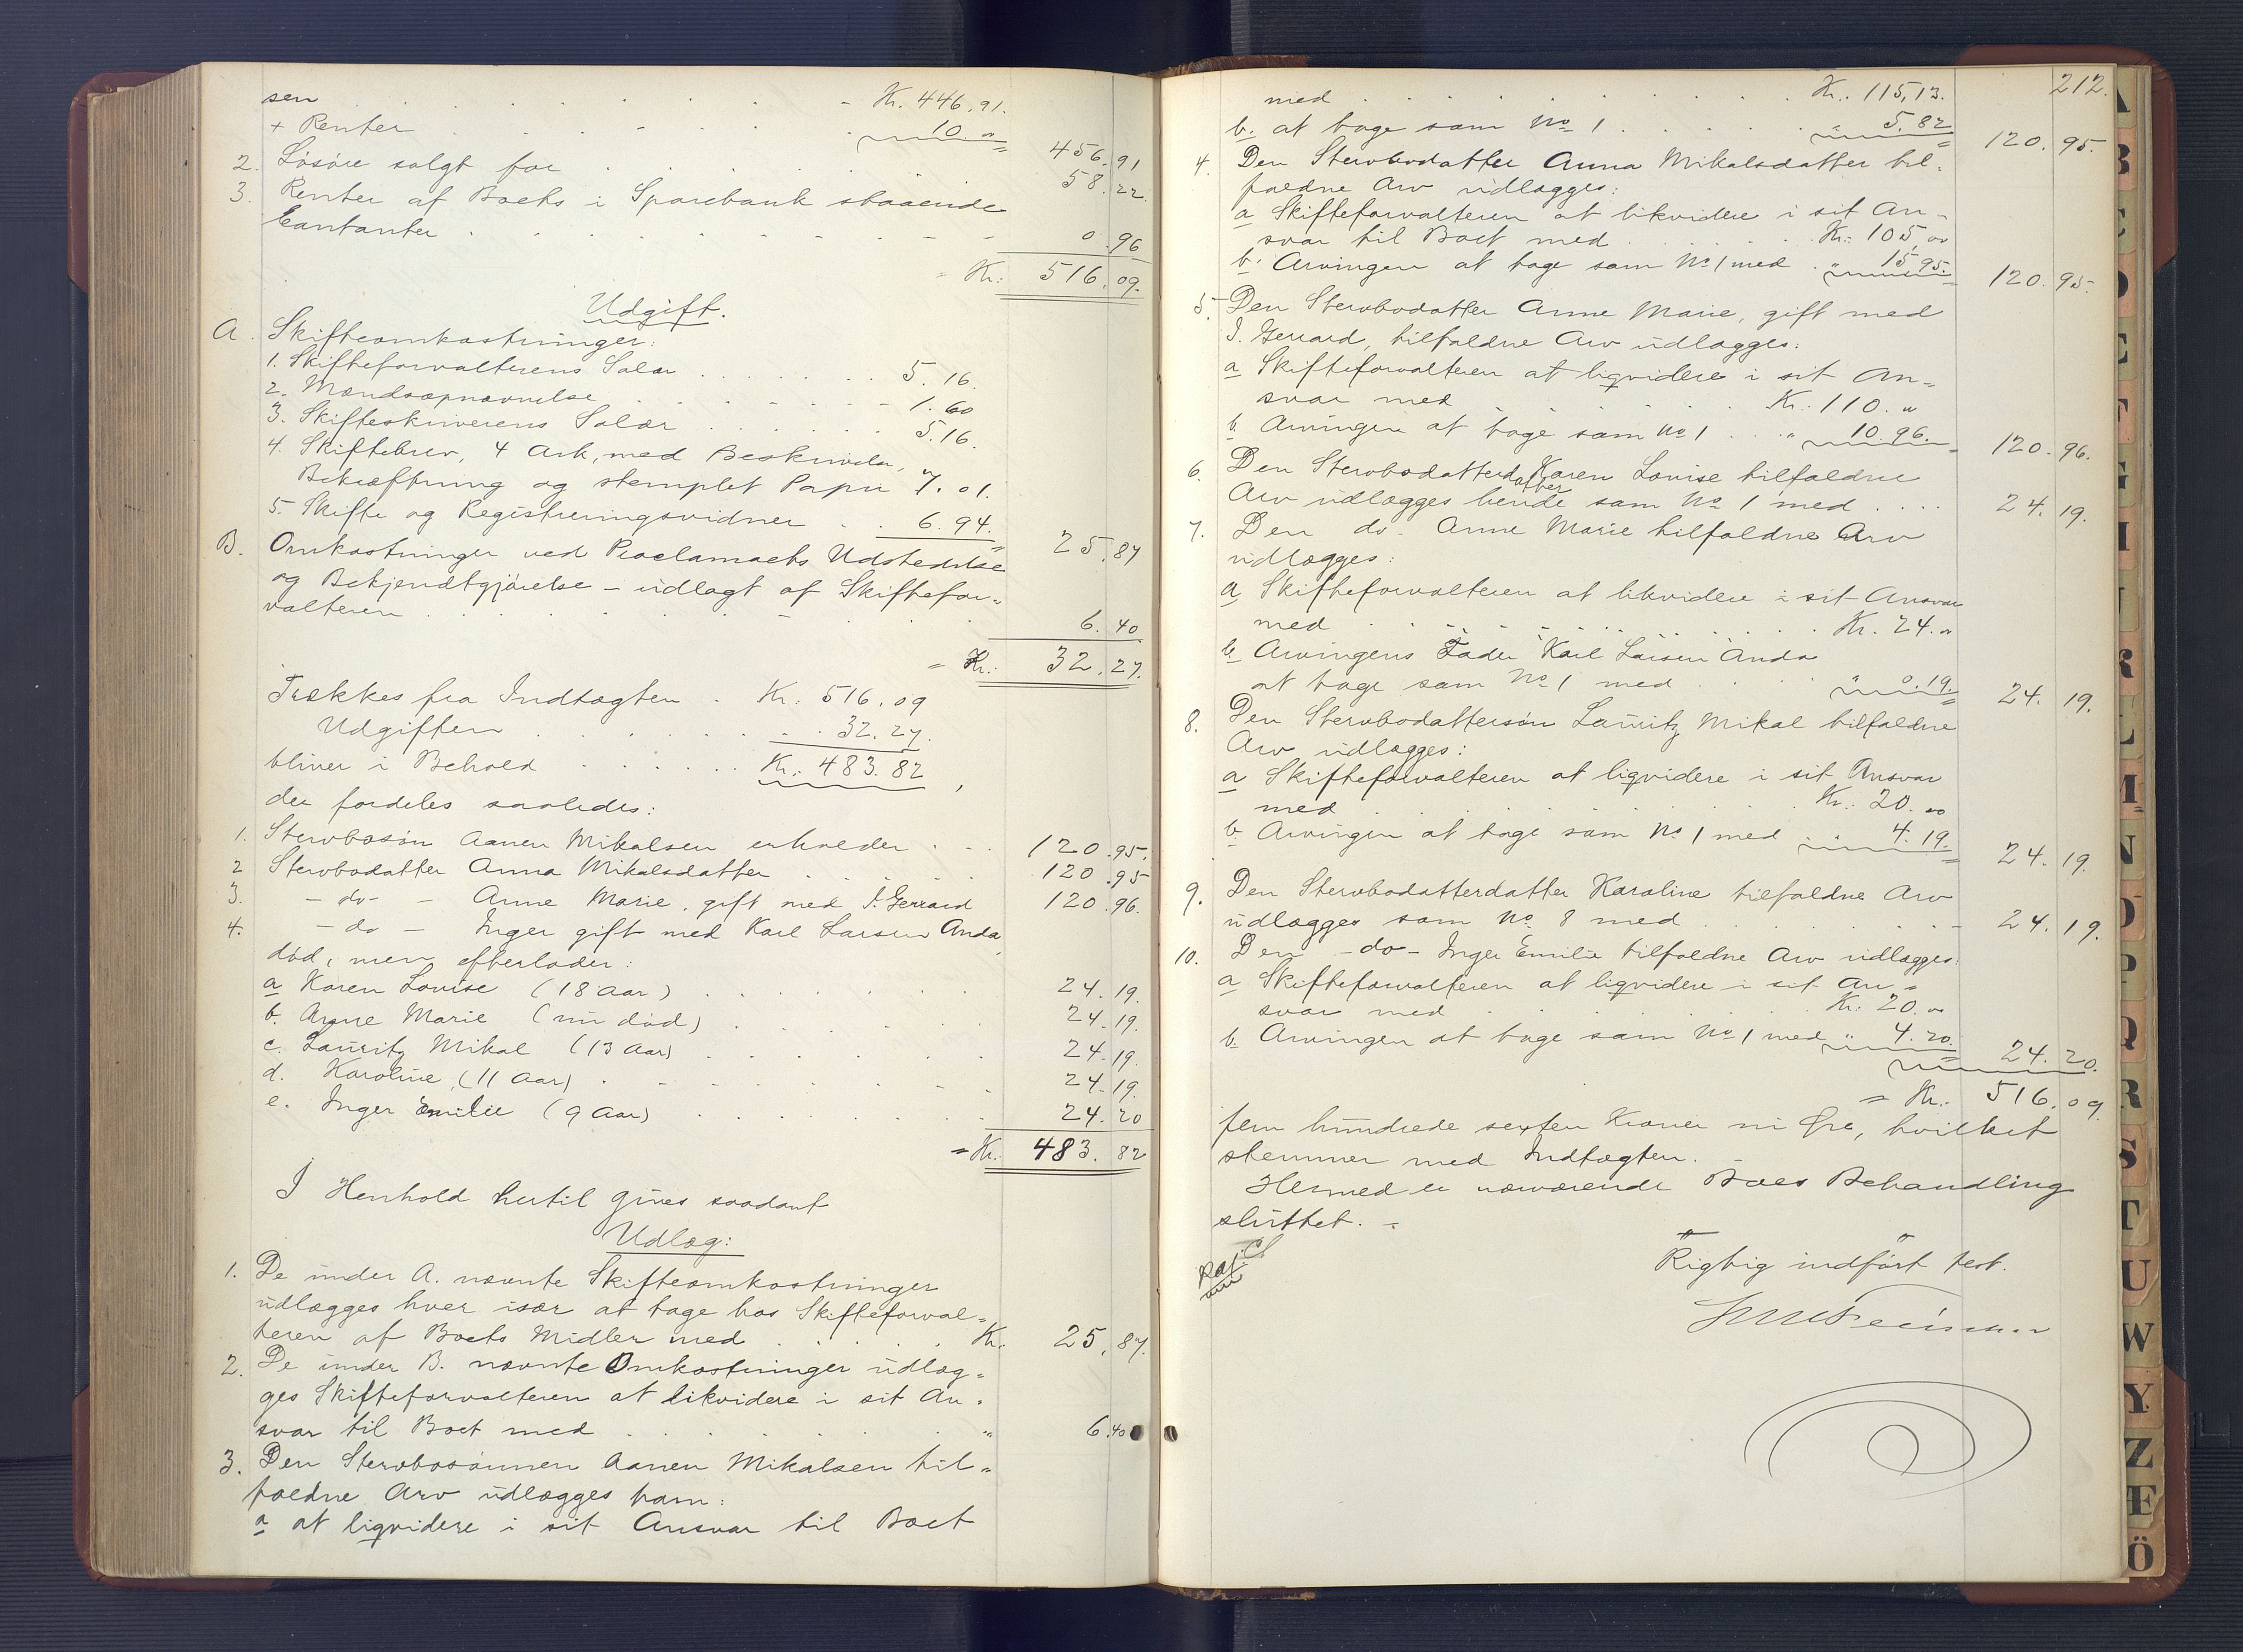 sen . . . . . . . . - Kr. 446,91.
+ Renter . . . . . . . 10. " 456. 91
2. Løsøre solgt for . . . . . 58. 22
3. Renter af Boets i Sparebank staaende
Contanter . . . . . . . . . 0. 96
= Kr: 516. 09.
Udgift.
A. Skifteomkostninger:
1. Skifteforvalterens Salær . . . . . 5. 16.
2. Mændsopnævnelse . . . . . . 1. 60
3. Skifteskriverens Salær . . . . . 5. 16.
4. Skiftebrev, 4 Ark, med Beskrivelse,
Bekræftning og stemplet Papir 7. 01.
5. Skifte og Registreringsvidner . . 6. 94. 25. 87
B. Omkostninger ved Proclamaets Udstedelse
og Bekjendtgjørelse - udlagt af Skiftefor=
valteren . . . . . . . . 6. 40
= Kr.: 32. 27.
Trækkes fra Indtægten . Kr. 516. 09
Udgiften . . . . . . . 32. 27.
bliver i Behold . . . . . Kr.: 483. 82,
der fordeles saaledes:
1. Stervbosøn Aanen Mikalsen erholder . . . 120. 95.
2 Stervbodatter Anna Mikalsdatter . . . . . 120. 95
3. - do - Anne Marie, gift med I. Gerrard 120. 96.
4. - do - Inger gift med Karl Larsen Anda,
død, men efterlader:
a Karen Lovise (18 Aar) . . . . . . 24. 19.
b. Anne Marie (nu død) . . . . . . 24. 19.
c. Lauritz Mikal (13 Aar) . . . . . . 24. 19.
d. Karoline (11 Aar) . . . . . . . 24. 19.
e. Inger Emilie (9 Aar) . . . . . . 24. 20
= Kr. 483. 82
I Henhold hertil gives saadant
Udlæg:
1. De under A. nævnte Skifteomkostninger
udlægges hver især at tage hos Skifteforval=
teren af Boets Midler med . . . . . Kr. 25, 87.
2. De under B. nævnte Omkostninger udlæg=
ges Skifteforvalteren at likvidere i sit An=
svar til Boet med . . . . . . . " 6. 40
3. Den Stervbosønnen Aanen Mikalsen til=
faldne Arv udlægges ham:
a at liqvidere i sit Ansvar til Boet
212.
med . . . . . . . . . . Kr.: 115,13.
b. at tage som No 1 . . . . . " 5. 82 120. 95.
4. Den Stervbodatter Anna Mikalsdatter til=
faldne Arv udlægges:
a Skifteforvalteren at likvidere i sit An=
svar til Boet med . . . . . Kr: 105, 00
b. Arvingen at tage som No 1 med . " 15 95. 120. 95.
5. Den Stervbodatter Anne Marie, gift med
I. Gerrard, tilfaldne Arv udlægges:
a Skifteforvalteren at liqvidere i sit An=
svar med . . . . . . Kr.: 110. "
b Arvingen at tage som No 1 . . " 10. 96. 120. 96.
6. Den Stervbodatterdatter Karen Lovise tilfaldne
Arv udlægges hende som No 1 med . . . . 24. 19.
7. Den do - Anne Marie tilfaldne Arv
udlægges:
a Skifteforvalteren at likvidere i sit Ansvar
med . . . . . . . . . . Kr. 24. "
b Arvingens Fader Karl Larsen Anda
at tage som No 1 med . . . . " 0. 19. 24. 19.
8. Den Stervbodattersøn Lauritz Mikal tilfaldne
Arv udlægges:
a Skifteforvalteren at liqvidere i sit Ansvar
med . . . . . . . . . . Kr.: 20. 00
b. Arvingen at tage som No 1 med . " 4. 19. 24. 19.
9. Den Stervbodatterdatter Karoline tilfaldne Arv
udlægges som No. 8 med . . . . . . . 24. 19.
10. Den - do - Inger Emilie tilfaldne Arv udlægges:
a Skifteforvalteren at liqvidere i sit An=
svar med . . . . . . . Kr: 20. 00
b. Arvingen at tage som No 1 med " 4. 20. 24. 20.
= Kr.: 516. 09.
fem hundrede sexten Kroner ni Øre, hvilket
stemmer med Indtægten. -
Hermed er nærværende Boes Behandling
sluttet. -
Rigtig indført test.